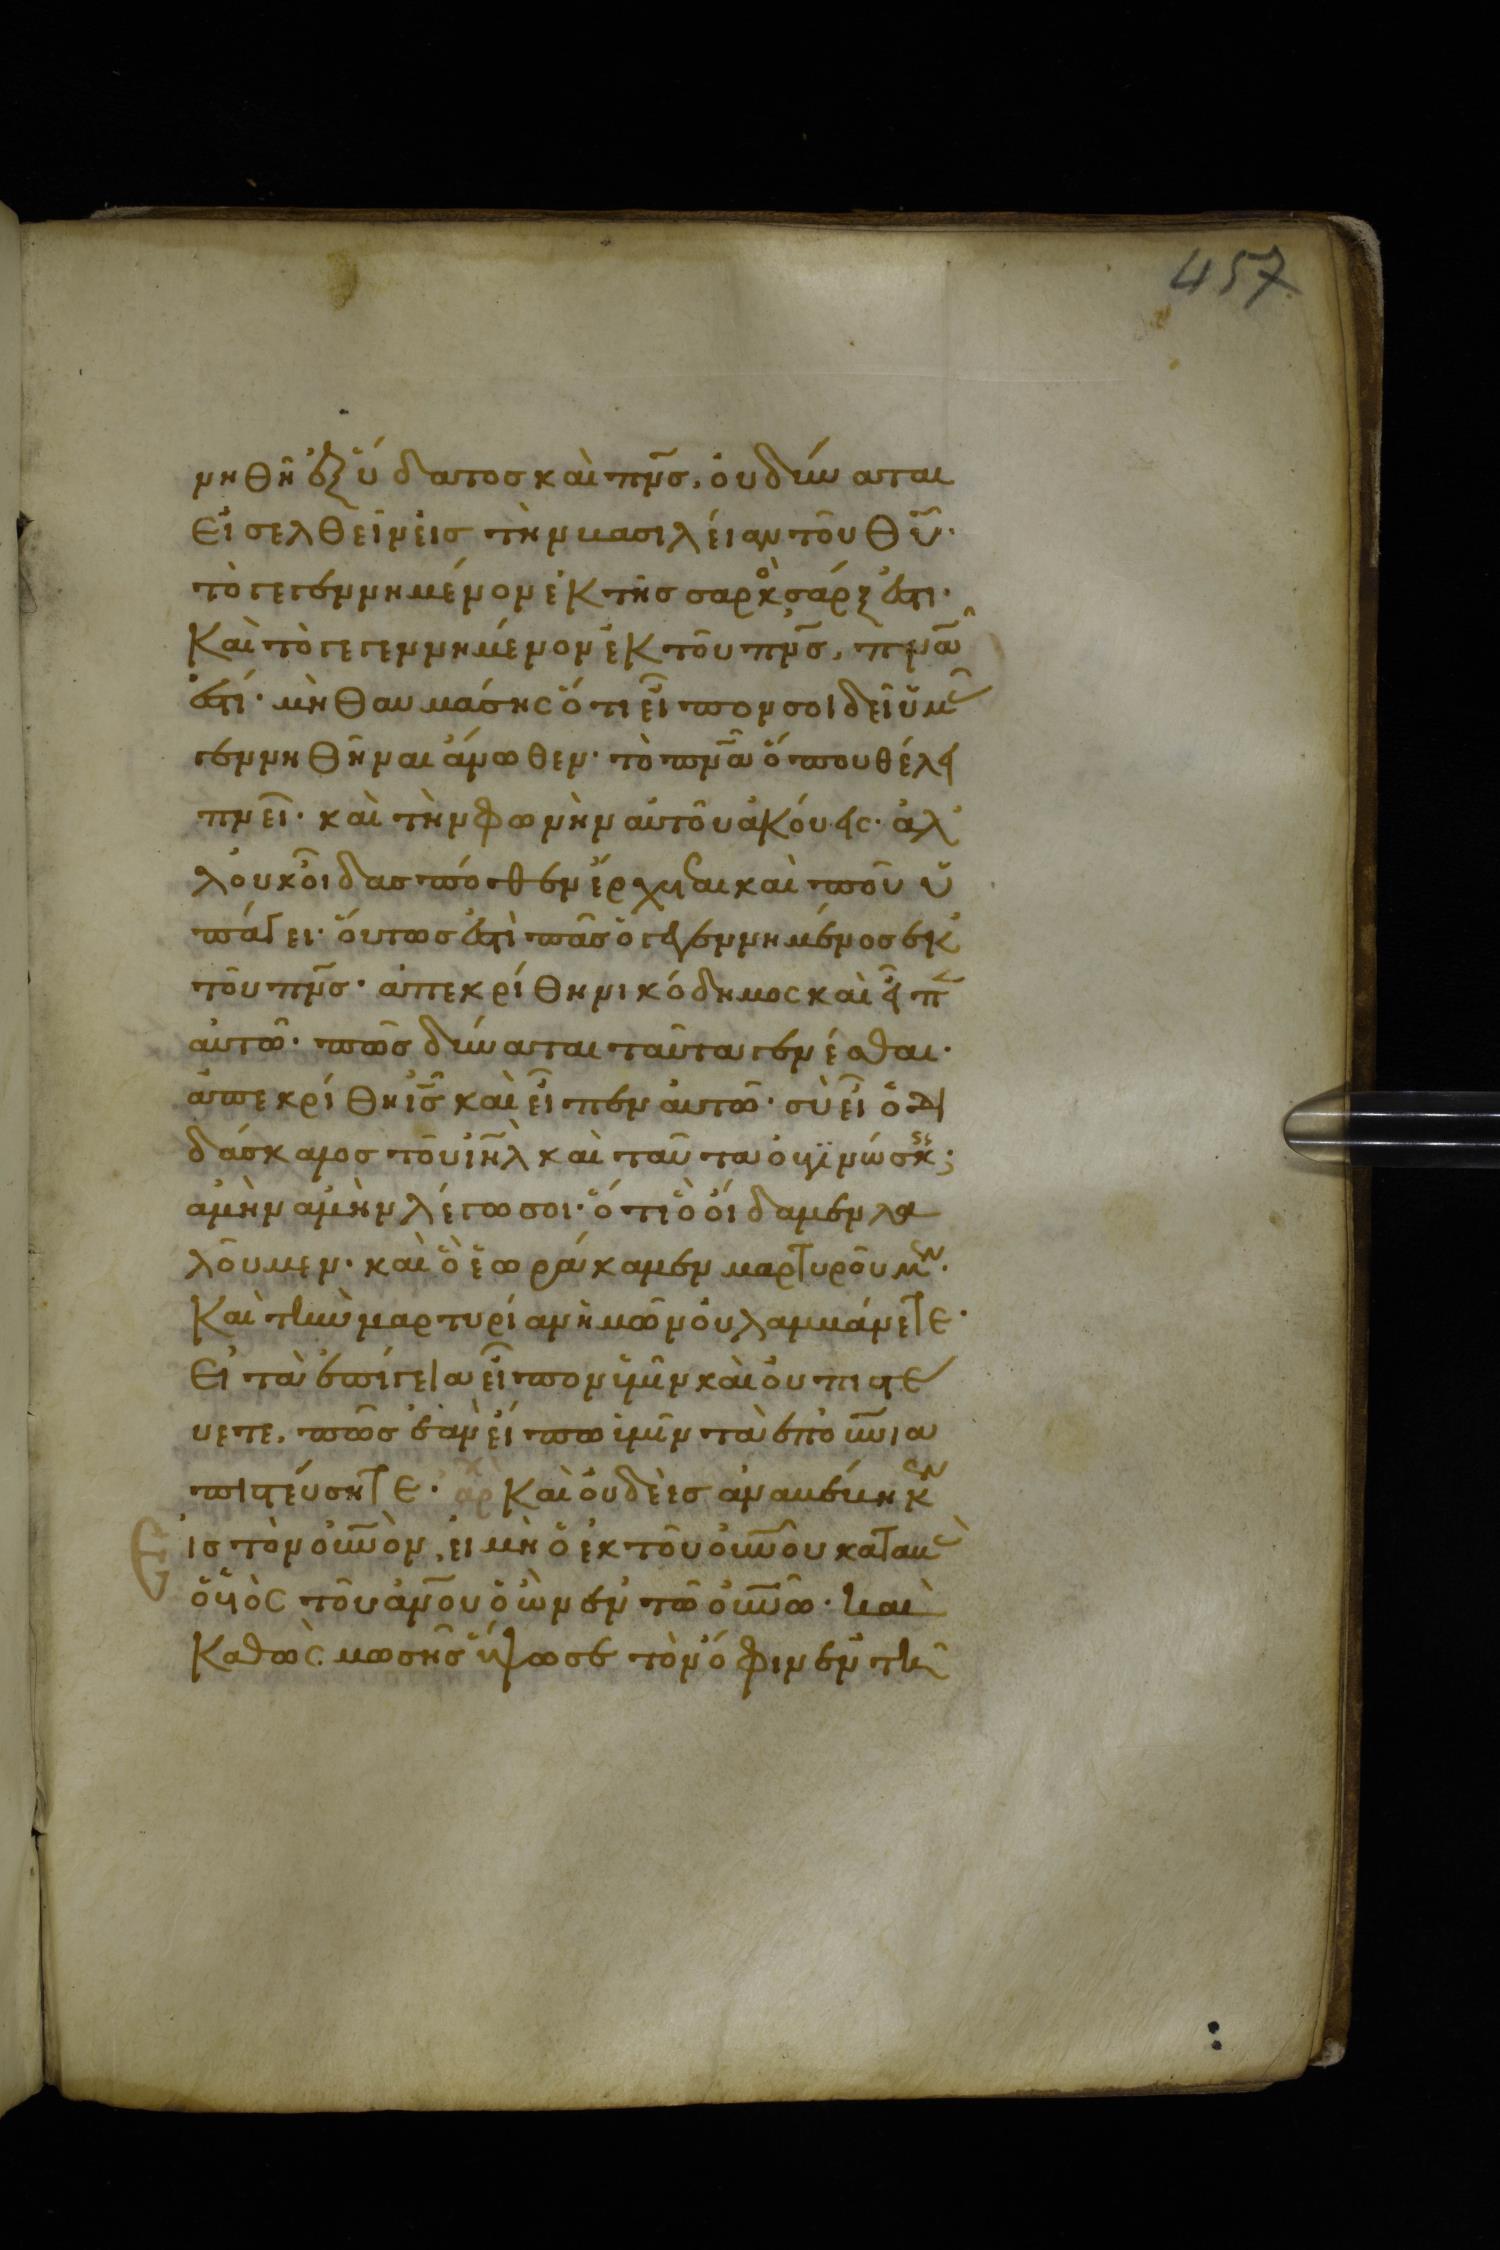 457
νηθῆ ἐξ ὕδατος καὶ πν̅ς, οὐ δύναται
εἰσελθεῖν εἰς τὴν βασιλείαν τοῦ θυ̅·
τὸ γεγεννημένον ἐκ τῆς σαρκὸς σάρξ ἐστι·
καὶ τὸ γεγεννημένον ἐκ τοῦ πν̅ς, πν̅α
ἐστί· μὴ θαυμάσης ὅτι εἶπον σοι δεῖ ὑμᾶς
γεννηθῆναι ἄνωθεν· τὸ πν̅α ὅπου θέλει
πνεῖ· καὶ τὴν φωνὴν αὐτοῦ ἀκούεις· ἀλ
λ' οὐκ οἶδας πόθεν ἔρχεται καὶ ποῦ ὑ
πάγει· οὕτως ἐστὶ πᾶς ὁ γεγεννημένος ἐκ
τοῦ πν̅ς· ἀπεκρίθη νικόδημος καὶ εἶπεν
αὐτῶ· πῶς δύναται ταῦτα γενέσθαι·
ἀπεκρίθη ις̅ καὶ εἶπεν αὐτῶ· σὺ εἶ ὁ δι
δάσκαλος τοῦ ιη̅λ καὶ ταῦτα οὐ γινώσκεις;
ἀμὴν ἀμὴν λέγω σοι· ὅτι ὃ οἴδαμεν λα
λοῦμεν· καὶ ὃ ἑωράκαμεν μαρτυροῦμεν·
καὶ τὴν μαρτυρίαν ἡμῶν οὐ λαμβάνετε·
εἰ τὰ ἐπίγεια εἶπον ὑμῖν καὶ οὐ πιστε
ύετε, πῶς ἐὰν εἴπω ὑμῖν τὰ ἐπουν̅ια
πιστεύσητε· ἀρχ καὶ οὐδεὶς ἀναβέβηκεν
εἰς τὸν οὐν̅ὸν, εἰ μὴ ὁ ἐκ τοῦ οὐν̅οῦ καταβὰς
ὁ υἱὸς τοῦ ἀν̅ου ὁ ὢν ἐν τῶ οὐν̅ῶ· καὶ
καθὼς μωσῆς ὕψωσε τὸν ὄφιν ἐν τῆ